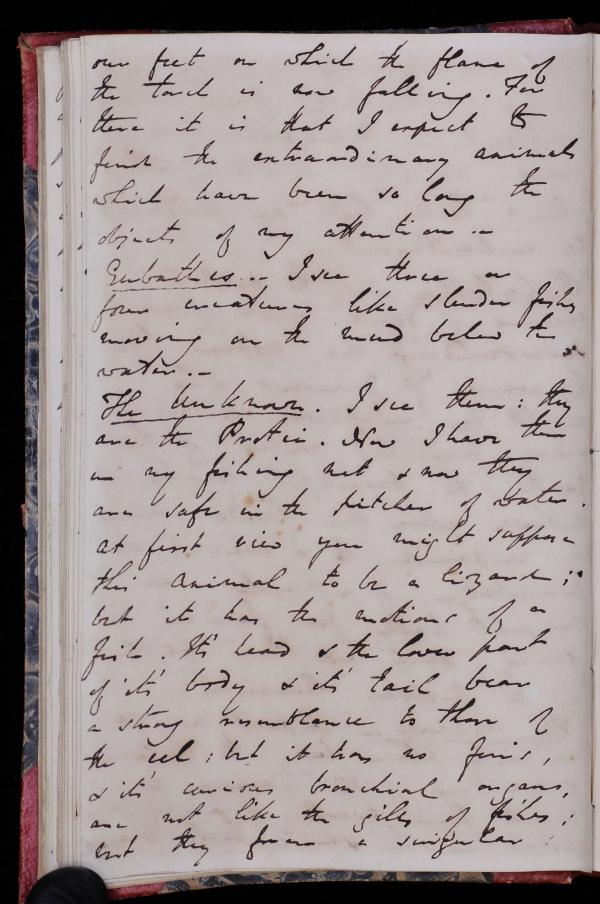 our feet on which the flame of
the torch is now falling. For
there it is that I expect to
find the extraordinary animals
which have been so long the
objects of my attention. —
Eubathes. — I see three or
four creatures like slender fishes
moving on the mud below the
water. —
The Unknown. I see them: they
are the Protei. Now I have them
in my fishing net & now they
are safe in the pitcher of water.
at first view you might suppose
this animal to be a lizard;
but it has the motions of a
fish. It's head & the lower part
of it's body & it's tail bear
a strong resemblance to those of
the eel; but it has no fins,
& it's curious bronchial organs,
are not like the gills of fishes;
but they form a singular